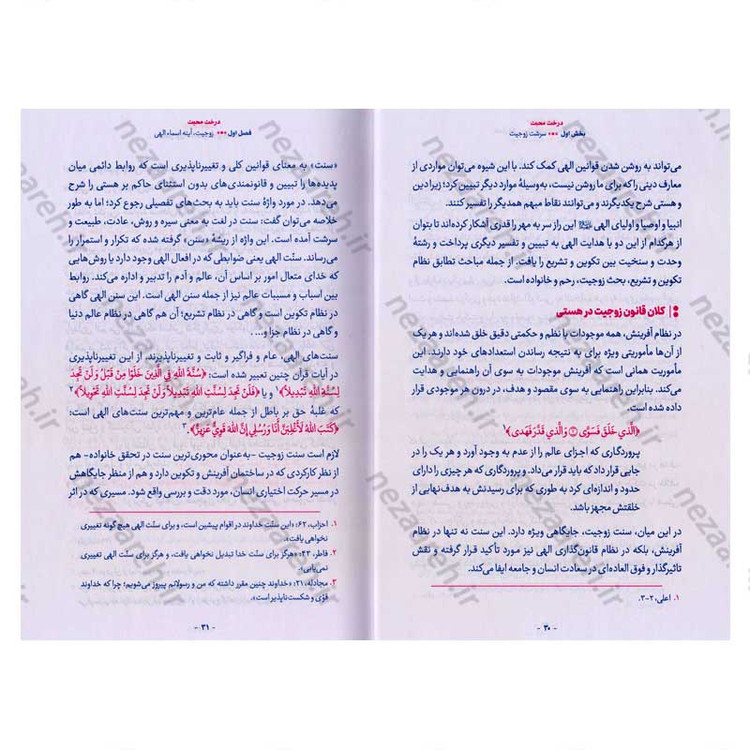 درخت محبت
بخش اول ●●● سرشت زوجیت
می‌تواند به روشن شدن قوانین الهی کمک کند. با این شیوه می‌توان مواردی از
معارف دینی را که برای ما روشن نیست، به‌وسیلهٔ موارد دیگر تبیین کرد؛ زیرا دین
و هستی شرح یکدیگرند و می‌توانند نقاط مبهم همدیگر را تفسیر کنند.
انبیا و اوصیا و اولیای الهی این راز سر به مهر را قدری آشکار کرده‌اند تا بتوان
از هرکدام از این دو با هدایت الهی به تبیین و تفسیر دیگری پرداخت و رشتهٔ
وحدت و سنخیت بین تکوین و تشریع را یافت. از جمله مباحث تطابق نظام
تکوین و تشریع، بحث زوجیت، رحم و خانواده است.
کلان قانون زوجیت در هستی
در نظام آفرینش، همه موجودات با نظم و حکمتی دقیق خلق شده‌اند و هر یک
از آن‌ها مأموریتی ویژه برای به نتیجه رساندن استعدادهای خود دارند. این
مأموریت همانی است که آفرینش موجودات به سوی آن راهنمایی و هدایت
می‌کند. بنابراین راهنمایی به سوی مقصود و هدف، در درون هر موجودی قرار
داده شده است.
﴿الَّذي خَلَقَ فَسَوَّى ۲ وَالَّذي قَدَّرَ فَهَدى﴾۱
پروردگاری که اجزای عالم را از عدم به وجود آورد و هر یک را در
جایی قرار داد که باید قرار می‌داد. و پروردگاری که هر چیزی را دارای
حدود و اندازه‌ای کرد به طوری که برای رسیدنش به هدف‌نهایی از
خلقتش مجهز باشد.
در این میان، سنت زوجیت، جایگاهی ویژه دارد. این سنت نه تنها در نظام
آفرینش، بلکه در نظام قانون‌گذاری الهی نیز مورد تأکید قرار گرفته و نقش
تاثیرگذار و فوق العاده‌ای در سعادت انسان و جامعه ایفا می‌کند.
۱. اعلی، ۲-۳.
- ۳۰ -
درخت محبت
فصل اول ●●● زوجیت، آینه اسماء الهی
«سنت» به معنای قوانین کلی و تغییرناپذیری است که روابط دائمی میان
پدیده‌ها را تبیین و قانونمندی‌های بدون استثنای حاکم بر هستی را شرح
می‌دهد. در مورد واژهٔ سنت باید به بحث‌های تفصیلی رجوع کرد؛ اما به طور
خلاصه می‌توان گفت: سنت در لغت به معنای سیره و روش، عادت، طبیعت و
سرشت آمده است. این واژه از ریشهٔ «سنن» گرفته شده که تکرار و استمرار را
می‌رساند. سنّت الهی یعنی ضوابطی که در افعال الهی وجود دارد یا روش‌هایی
که خدای متعال امور بر اساس آن، عالم و آدم را تدبیر و اداره می‌کند. روابط
بین اسباب و مسببات عالم نیز از جمله سنن الهی است. این سنن الهی گاهی
در نظام تکوین است و گاهی در نظام تشریع؛ آن هم گاهی در نظام عالم دنیا
و گاهی در نظام جزا و....
سنت‌های الهی، عام و فراگیر و ثابت و تغییرناپذیرند. از این تغییرناپذیری
در آیات قرآن چنین تعبیر شده است: ﴿سُنَّةَ اللهِ فِي الَّذينَ خَلَوْا مِنْ قَبْلُ وَلَنْ تَجِدَ
لِسُنَّةِ اللهِ تَبْديلاً﴾۱ و یا ﴿فَلَنْ تَجِدَ لِسُنَّتِ اللهِ تَبْديلاً وَلَنْ تَجِدَ لِسُنَّتِ اللهِ تَحْويلاً﴾۲
که غلبهٔ حق بر باطل از جمله عام‌ترین و مهم‌ترین سنت‌های الهی است:
﴿كَتَبَ اللهُ لَأَغْلِبَنَّ أَنَا وَرُسُلي إِنَّ اللهَ قَوِيٌّ عَزيزٌ﴾.۳
لازم است سنت زوجیت -به‌عنوان محوری‌ترین سنت در تحقق خانواده- هم
از نظر کارکردی که در ساختمان آفرینش و تکوین دارد و هم از منظر جایگاهش
در مسیر حرکت اختیاری انسان، مورد دقت و بررسی واقع شود. مسیری که در اثر
۱. احزاب، ۶۲؛ «این سنّت خداوند در اقوام پیشین است، و برای سنّت الهی هیچ گونه تغییری
نخواهی یافت».
۲. فاطر، ۴۳؛ «هرگز برای سنّت خدا تبدیل نخواهی یافت، و هرگز برای سنّت الهی تغییری
نمی‌یابی».
۳. مجادله، ۲۱؛ «خداوند چنین مقرر داشته که من و رسولانم پیروز می‌شویم؛ چرا که خداوند
قوی و شکست‌ناپذیر است».
- ۳۱ -
nezaareh.ir